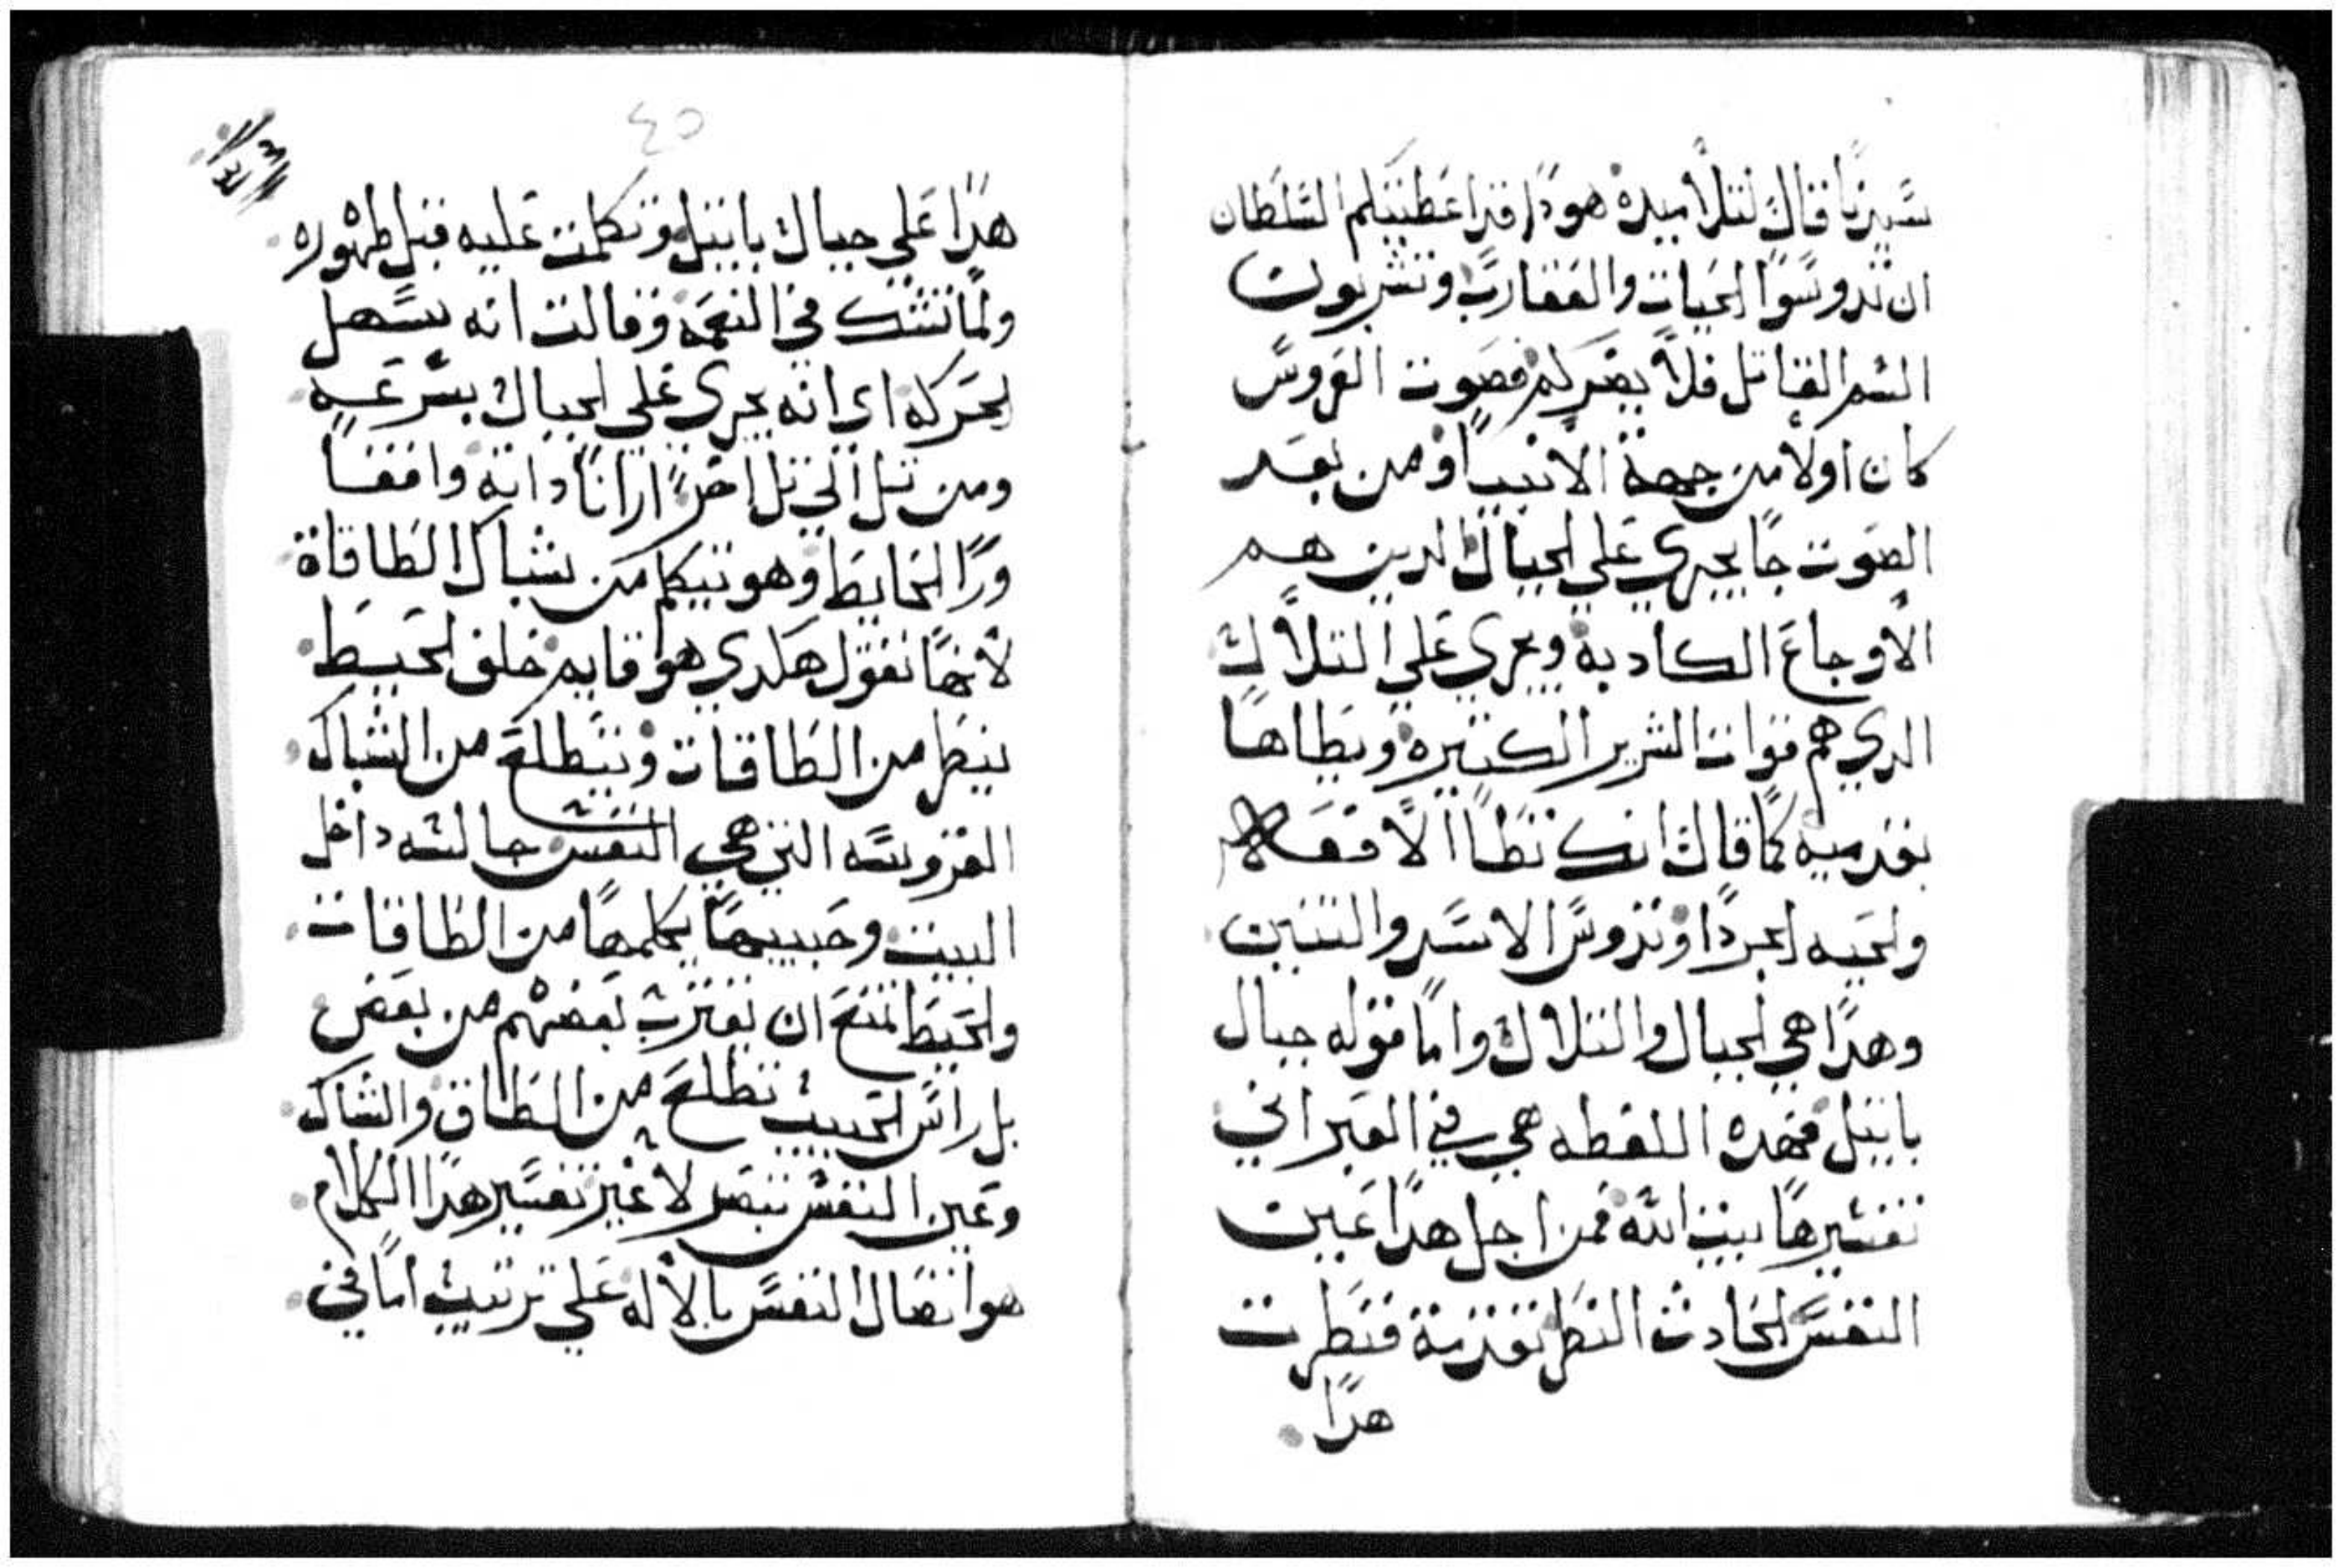 سيدنا قال لتلاميده هودا قد اعطيتكم السلطان
ان تدوسوا الحيات والعقارب وتشربون
السم القاتل فلا يضركم فصوت العروس
كان اولا من جهة الانبيا ومن بعد
الصوت جا يجري علي الجبال الدين هم
الاوجاع الكادبه ويجري علي التلال
الدي هم قوات الشرير الكتيره ويطاها
بقدميه كما قال انك تطا الافعا
والحيه الجردا وتدوس الاسد والتنين
وهدا هي الجبال والتلال واما قوله جبال
باتيل فهده اللفطه هي في العبراني
تفسيرها بيت الله فمن اجل هدا عين
النفس الحادت النطر تقدمة فنطرت
هدا
٤٥
هدا علي جبال باتيل وتكلمت عليه قبل طهوره
ولما تشك في النعمه وقالت انه يسهل
الحركه اي انه يجري علي الجبال بسرعه
ومن تل الي تل اخر ارانا داته واقفا
ورا الحايط وهو يتكلم من شباك الطاقاة
لانها تقول هلدي هوا قايم خلف الحيط
ينطر من الطاقات ويتطلع من الشباك
العروسه التي هي النفس جالسه داخل
البيت وحبيبها يكلمها من الطاقات
والحيط تمنع ان يقترب بعضهم من بعض
بل راس الحبيب تطلع من الطاق والشباك
وعين النفس تبصر لا غير تفسير هدا الكلام
هو اتصال النفس بالاله علي ترتيب اما في